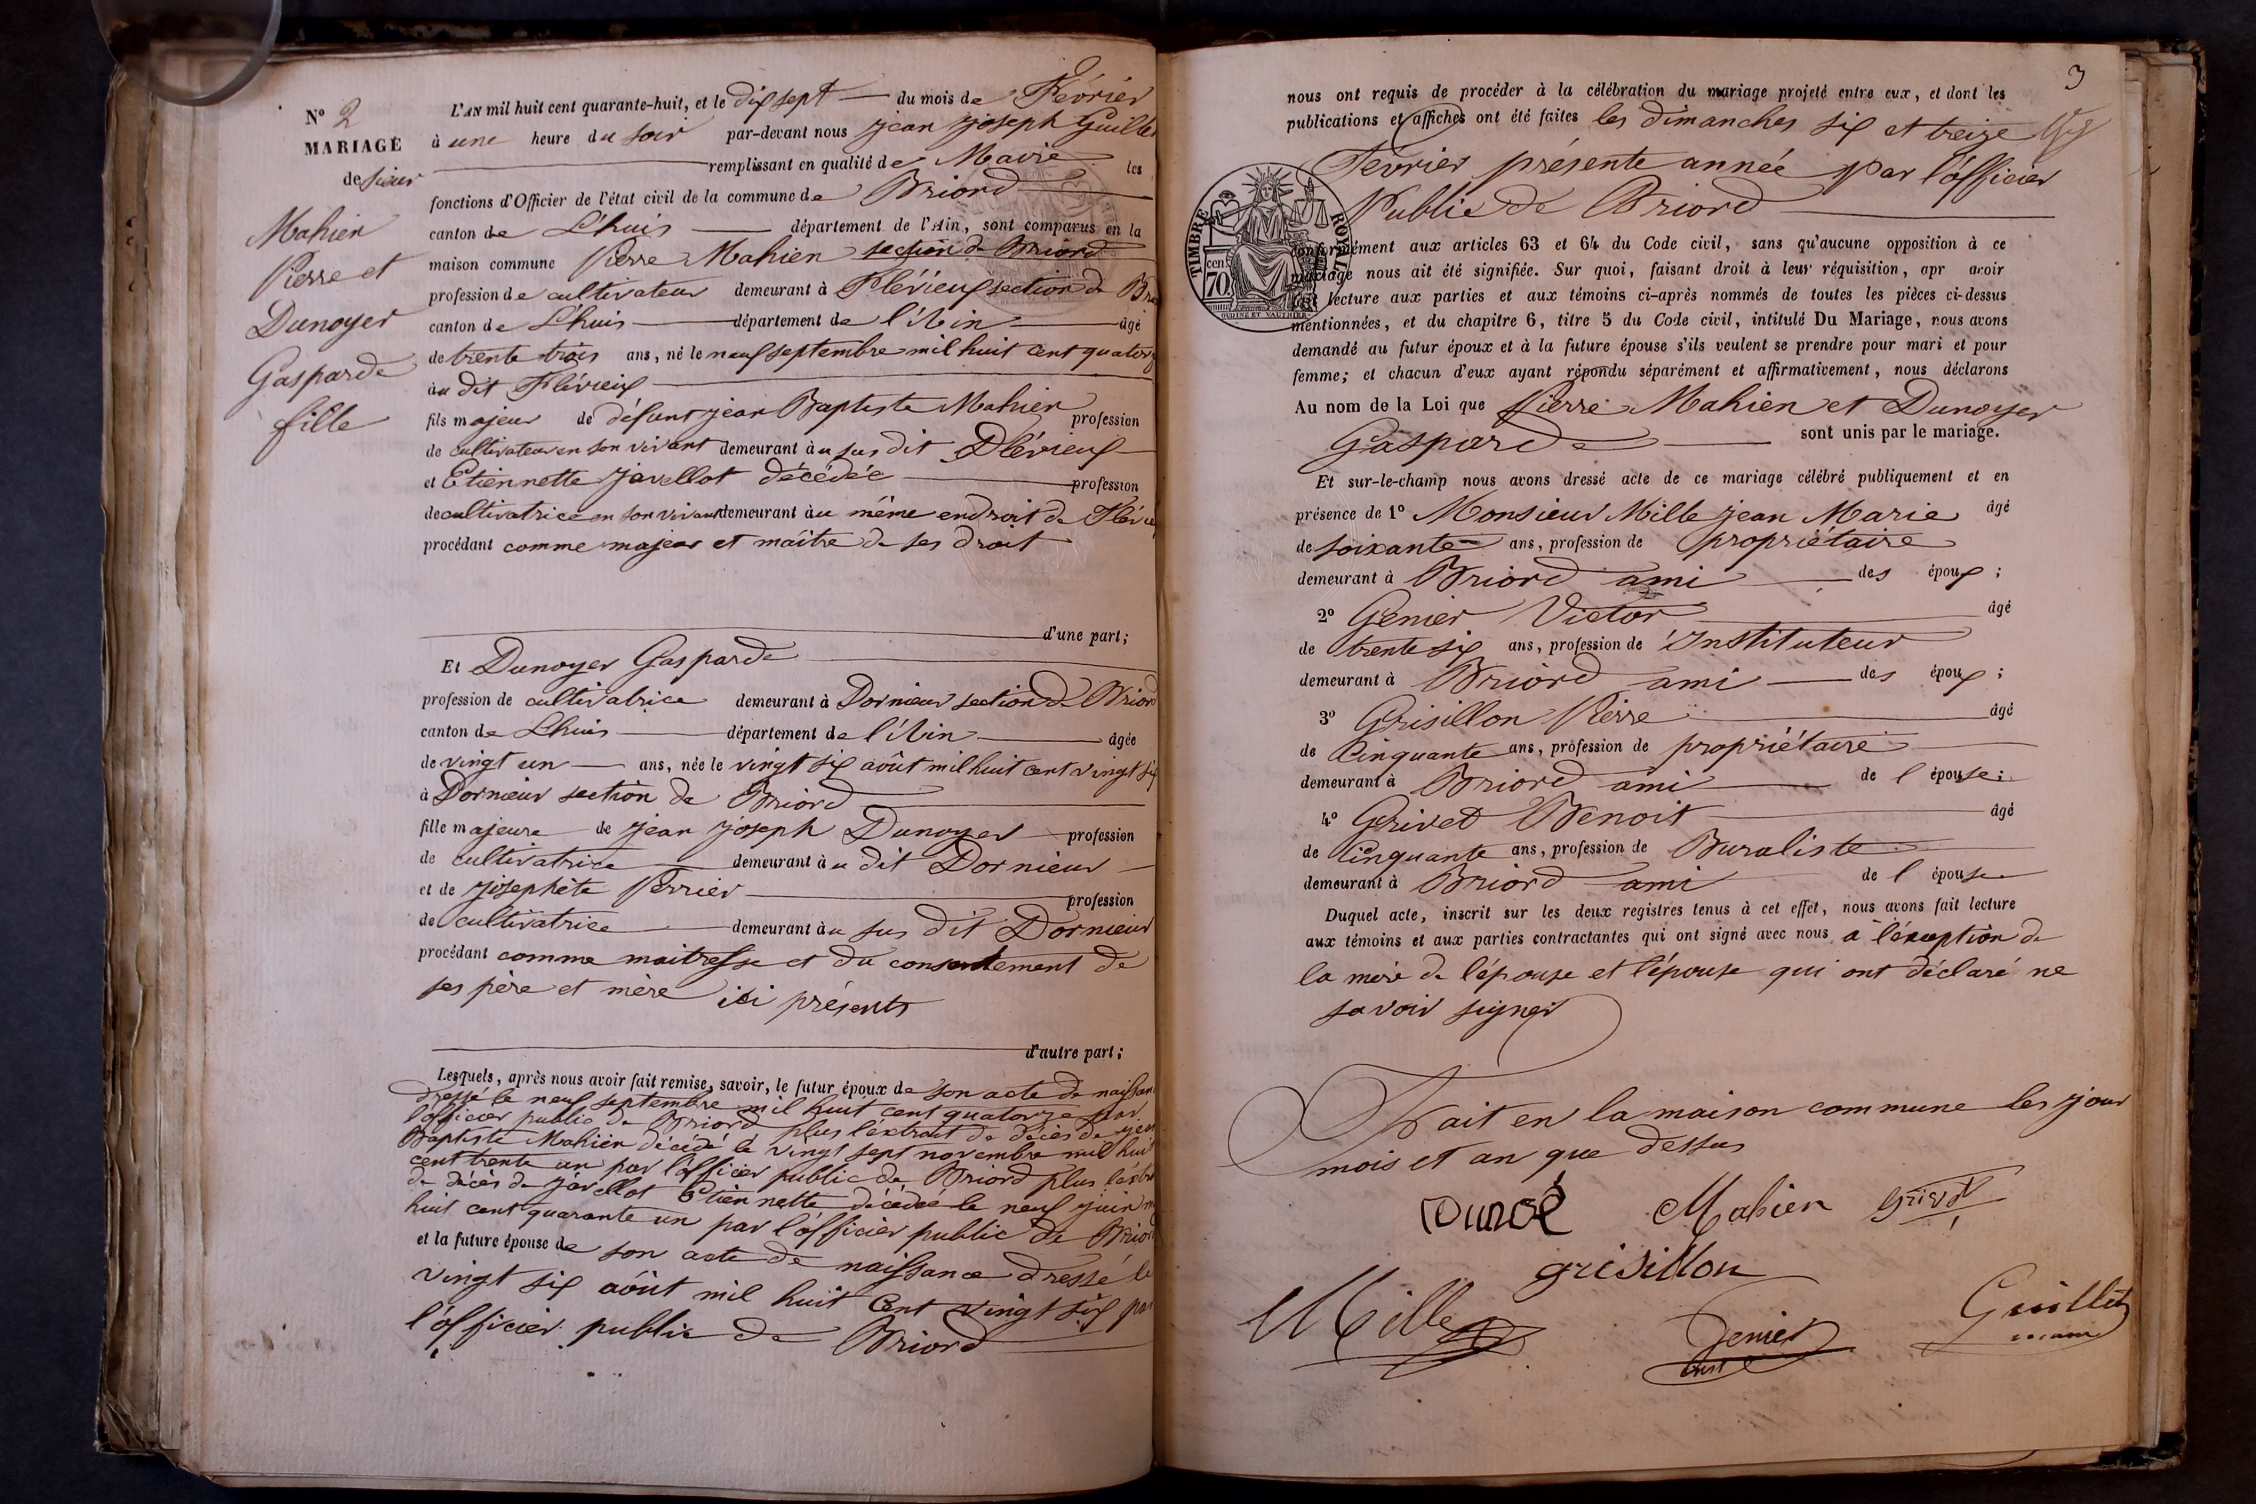 N° 2
MARIAGE
de sieur
Mahien
Pierre et
Dunoyer
Gasparde
fille
L'AN mil huit cent quarante-huit, et le dix sept du mois de Février
à une heure du soir par-devant nous jean joseph Guillet
remplissant en qualité de Mavie les
fonctions d'Officier de l'état civil de la commune de Briord
canton de L'huis département de l'Ain, sont comparus en la
maison commune Pierre Mahien section de Briord
profession de cultivateur demeurant à Flévieux section de Brio
canton de Lhuis département de l'Ain âgé
de trente trois ans, né le neuf septembre mil huit cent quatorz
au dit Flévieux
fils majeur de défunt jean Baptiste Mahien profession
de cultivateur en son vivant demeurant à u sus dit Flévieux
et Etiennette Javellot décédée profession
de cultivatrice en son vivant demeurant à u même endroit de Flévieux
procédant comme majeur et maître de ses droit
d'une part;
Et Dunoyer Gasparde
profession de cultivatrice demeurant à Dornieux section de Briord
canton de Lhuis département de l'Ain âgée
de vingt un ans, née le vingt six août mil huit cent vingt six
à Dornieux section de Briord
fille majeure de jean joseph Dunoyer profession
de cultivatrice demeurant à u dit Dornieux
et de josephète Perrier profession
de cultivatrice demeurant à u sus dit Dornieux
procédant comme maitresse et du consentement de
ses père et mère ici présents
d'autre part;
Lesquels, après nous avoir fait remise, savoir, le futur époux de son acte de naissan
dressé le neuf septembre mil huit cent quatorze par
l'officier public de Briord plus l'extrait de décès de jean
Baptiste Mahien décédé le vingt sept novembre mil huit
cent trente un par l'officier public de Briord plus l'extr
de décès de javellot Etiennette décédée le neuf juin m
huit cent quarante un par l'officier public de Briord
et la future épouse de son acte de naissance dressé le
vingt six août mil huit cent vingt six par
l'officier public de Briord
3
nous ont requis de procéder à la célébration du mariage projeté entre eux, et dont les
publications et affiches ont été faites les dimanches six et treize
Février présente année par l'officier
Public de Briord
TIMBRE ROYAL
70 cen
OUDINÉ ET VAUTHIER
conformément aux articles 63 et 64 du Code civil, sans qu'aucune opposition à ce
mariage nous ait été signifiée. Sur quoi, faisant droit à leur réquisition, apr avoir
fait lecture aux parties et aux témoins ci-après nommés de toutes les pièces ci-dessus
mentionnées, et du chapitre 6, titre 5 du Code civil, intitulé Du Mariage, nous avons
demandé au futur époux et à la future épouse s'ils veulent se prendre pour mari et pour
femme; et chacun d'eux ayant répondu séparément et affirmativement, nous déclarons
Au nom de la Loi que Pierre Mahien et Dunoyer
Gasparde sont unis par le mariage.
Et sur-le-champ nous avons dressé acte de ce mariage célébré publiquement et en
présence de 1° Monsieur Mille jean Marie âgé
de soixante ans, profession de propriétaire
demeurant à Briord ami des époux ;
2° Genier Victor âgé
de trente six ans, profession de Instituteur
demeurant à Briord ami des époux ;
3° Grisillon Pierre âgé
de Cinquante ans, profession de propriétaire
demeurant à Briord ami de l épouse ;
4° Grivet Benoit âgé
de Cinquante ans, profession de Buraliste
demeurant à Briord ami de l épouse
Duquel acte, inscrit sur les deux registres tenus à cet effet, nous avons fait lecture
aux témoins et aux parties contractantes qui ont signé avec nous à l'éxception de
la mère de l'épouse et l'épouse qui ont déclaré ne
savoir signer
Fait en la maison commune les jour
mois et an que dessus
Mahien Grivet
grisillon
Mille Genier Guillet
inst maire